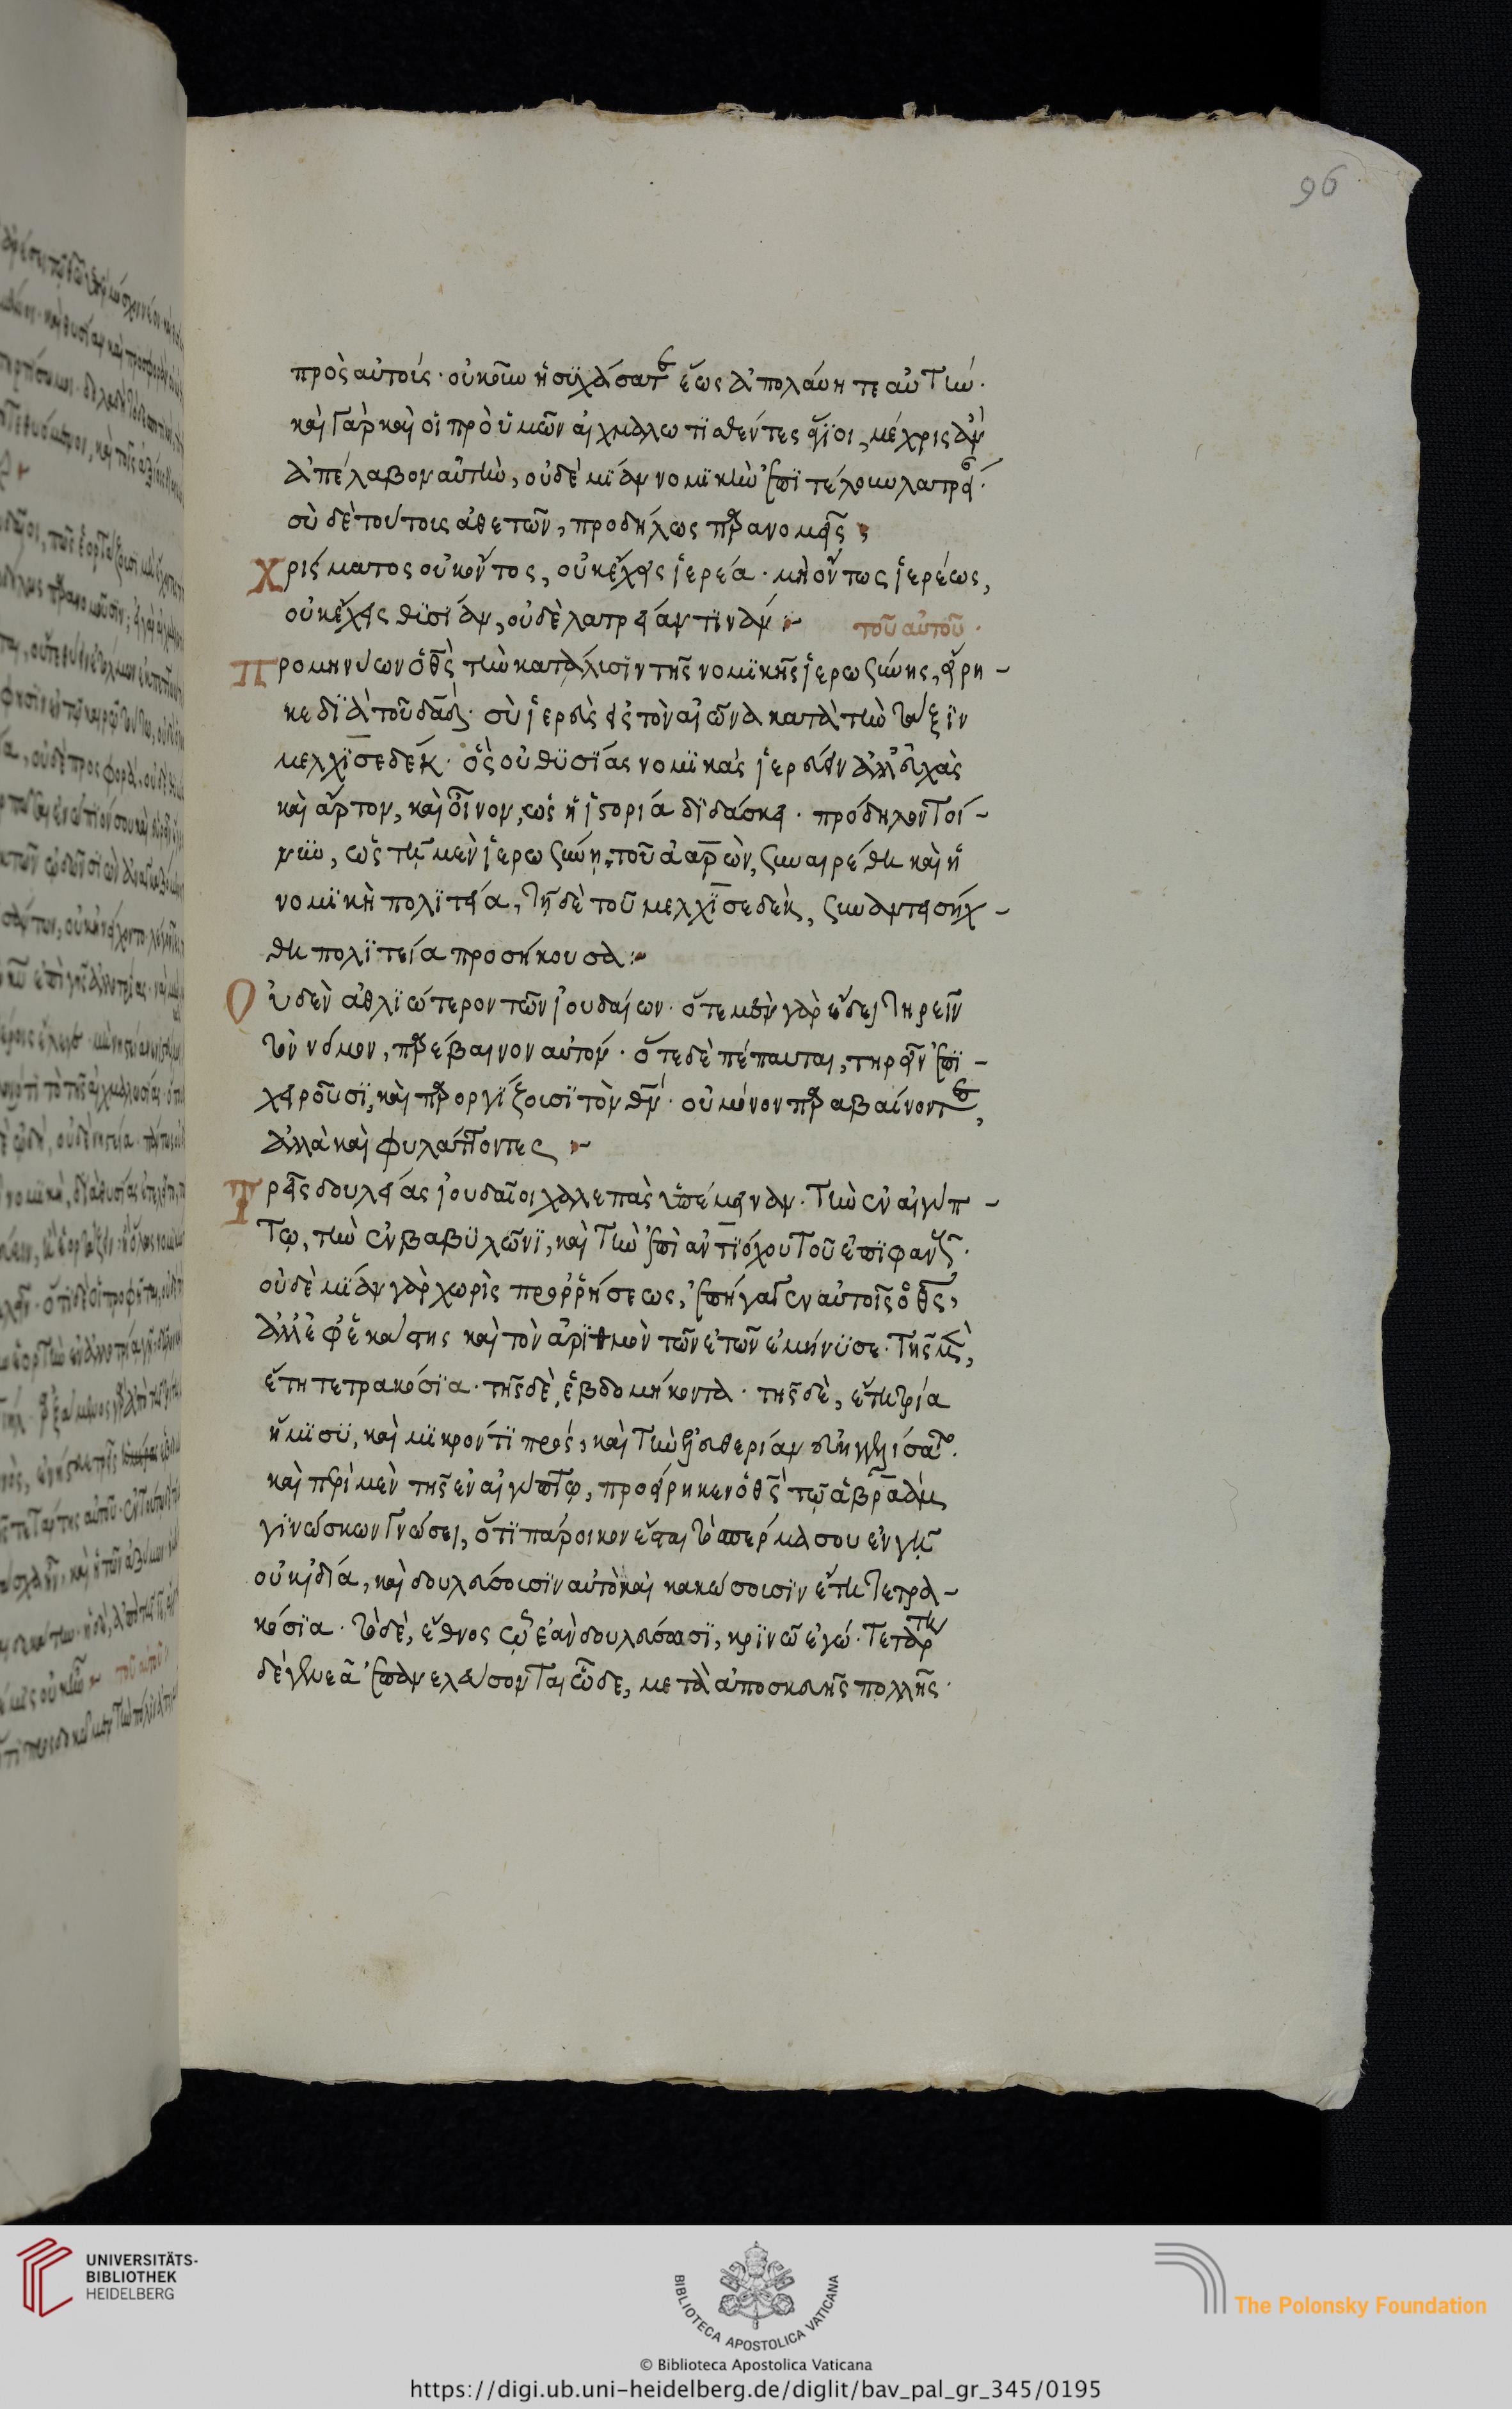 96
πρὸς αὐτοίς · οὐκοῦν ἡσϋχάσατε ἕως ἀπολάβητε αὐτήν ·
καὶ γὰρ καὶ οἱ πρὸ ὑμῶν αἰχμαλωτϊσθέντες ἅγϊοι, μέχρις ἂν
ἀπέλαβον αὐτὴν, οὐδὲ μίαν νομϊκὴν ἐπϊτέλουν λατρείαν ·
σὺ δὲ τούτοις ἀθετῶν, προδήλως παρανομεῖς
χρίσματος οὐκ ὄντος, οὐκ ἔχεις ἱερέα · μὴ ὄντως ἱερέως,
οὐκ ἔχεις θϋσίαν, οὐδὲ λατρείαν τινάν
τοῦ αὐτοῦ ·
Προμηνύων ὁ θς τὴν κατάλυσϊν τῆς νομϊκῆς ἱερωσύνης, εἴρη-
κε δϊὰ τοῦ δαδ · σὺ ἱερεὺς εἰς τὸν αἰῶνα κατὰ τὴν τάξϊν
μελχϊσεδέκ · ὃς οὐ θϋσϊάς νομϊκὰς ἱερεύεν ἀλλ' εὐχὰς
καὶ ἄρτον, καὶ οἶνον, ὡς ἡ ἱστορία δϊδάσκει · πρόδηλον τοί-
νϋν, ὡς τῇ μὲν ἱερωσύνῃ τοῦ ἀαρὼν, συναιρέθη καὶ ἡ
νομϊκὴ πολϊτεία, τῇ δὲ τοῦ μελχϊσεδὲκ, συναντεισήχ-
θη πολϊτεία προσήκουσα
Οὐδὲν ἀθλϊώτερον τῶν ἰουδαίων · ὅτε μὲν γὰρ ἔδει τηρεῖν
τὸν νόμον, παρέβαινον αὐτόν · ὅτε δὲ πέπαυται, τηρεῖν ἐπϊ-
χειροῦσϊ, καὶ παροργϊζουσϊ τὸν θν · οὐ μόνον παραβαίνοντες,
ἀλλὰ καὶ φυλάττοντες
Τρεῖς δουλείας ἰουδαῖοι χαλεπὰς ὑπέμειναν · τὴν ἐν αἰγύπ-
τῳ, τὴν ἐν βαβϋλῶνϊ, καὶ τὴν ἐπὶ ἀντϊόχου τοῦ ἐπϊφανοῦς ·
οὐδὲ μϊὰν γὰρ χωρὶς προρρήσεως, ἐπήγαγεν αὐτοῖς ὁ θς,
ἀλλ' ἐφ' ἑκάστης καὶ τὸν ἀρϊθμὸν τῶν ἐτῶν ἐμήνϋσε · τῆς μὲν,
ἔτη τετρακόσϊα · τῆς δὲ, ἑβδομήκοντα · τῆς δὲ, ἔτη τρία
ἥμϊσϋ, καὶ μϊκρόν τϊ πρός, καὶ τὴν ἐλευθερίαν εὐηγγελίσατο ·
καὶ περὶ μὲν τῆς ἐν αἰγύπτῳ, προείρηκεν ὁ θς τῷ ἀβραὰμ
γϊνώσκων γνώσει, ὅτϊ πάροικον ἔσται τὸ σπέρμα σου ἐν γῇ
οὐκ ἰδία, καὶ δουλεύσουσϊν αὐτὸ καὶ κακώσουσϊν ἔτη τετρα-
κόσϊα · τὸ δὲ, ἔθνος ᾧ ἐὰν δουλεύσωσϊ, κρϊνῶ ἐγώ · τετάρτη
δὲ γενεᾶ ἐπανελεύσονται ὧδε, μετὰ ἀποσκευῆς πολλῆς ·
UNIVERSITÄTS-
BIBLIOTHEK
HEIDELBERG
BIBLIOTECA APOSTOLICA VATICANA
The Polonsky Foundation
© Biblioteca Apostolica Vaticana
https://digi.ub.uni-heidelberg.de/diglit/bav_pal_gr_345/0195